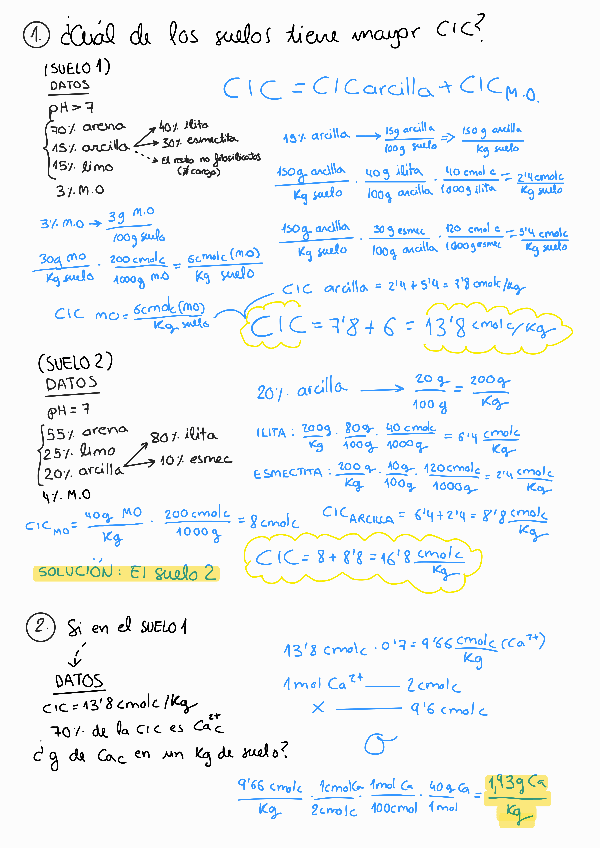 1. ¿Cuál de los suelos tiene mayor CIC?
(SUELO 1)
DATOS
pH > 7
70% arena
15% arcilla → 40% ilita
→ 30% esmectita
→ El resto no filosilicatos
(∄ carga)
15% limo
3% M.O
CIC = CIC arcilla + CIC M.O.
15% arcilla → 15g arcilla / 100g suelo => 150g arcilla / Kg suelo
150g arcilla / Kg suelo · 40g ilita / 100g arcilla · 40 cmolc / 1000g ilita = 2'4 cmolc / Kg suelo
3% M.O → 3g M.O / 100g suelo
150g arcilla / Kg suelo · 30g esmec / 100g arcilla · 120 cmolc / 1000g esmec = 5'4 cmolc / Kg suelo
30g MO / Kg suelo · 200 cmolc / 1000g MO = 6 cmolc (MO) / Kg suelo
CIC arcilla = 2'4 + 5'4 = 7'8 cmolc/Kg
CIC MO = 6 cmolc (MO) / Kg suelo
CIC = 7'8 + 6 = 13'8 cmolc/Kg
(SUELO 2)
DATOS
pH = 7
55% arena
25% limo
20% arcilla → 80% ilita
→ 10% esmec
4% M.O
20% arcilla → 20g / 100g = 200g / Kg
ILITA : 200g / Kg · 80g / 100g · 40 cmolc / 1000g = 6'4 cmolc / Kg
ESMECTITA : 200g / Kg · 10g / 100g · 120 cmolc / 1000g = 2'4 cmolc / Kg
CIC MO = 40g MO / Kg · 200 cmolc / 1000g = 8 cmolc
CIC ARCILLA = 6'4 + 2'4 = 8'8 cmolc / Kg
CIC = 8 + 8'8 = 16'8 cmolc / Kg
SOLUCIÓN : El suelo 2
2. Si en el SUELO 1
DATOS
CIC = 13'8 cmolc/Kg
70% de la CIC es Ca2+c
¿g de Cac en un Kg de suelo?
13'8 cmolc · 0'7 = 9'66 cmolc / Kg (Ca2+)
1 mol Ca2+ — 2 cmolc
x — 9'6 cmolc
9'66 cmolc / Kg · 1 cmol Ca / 2 cmolc · 1 mol Ca / 100 cmol · 40g Ca / 1 mol = 1,93 g Ca / Kg